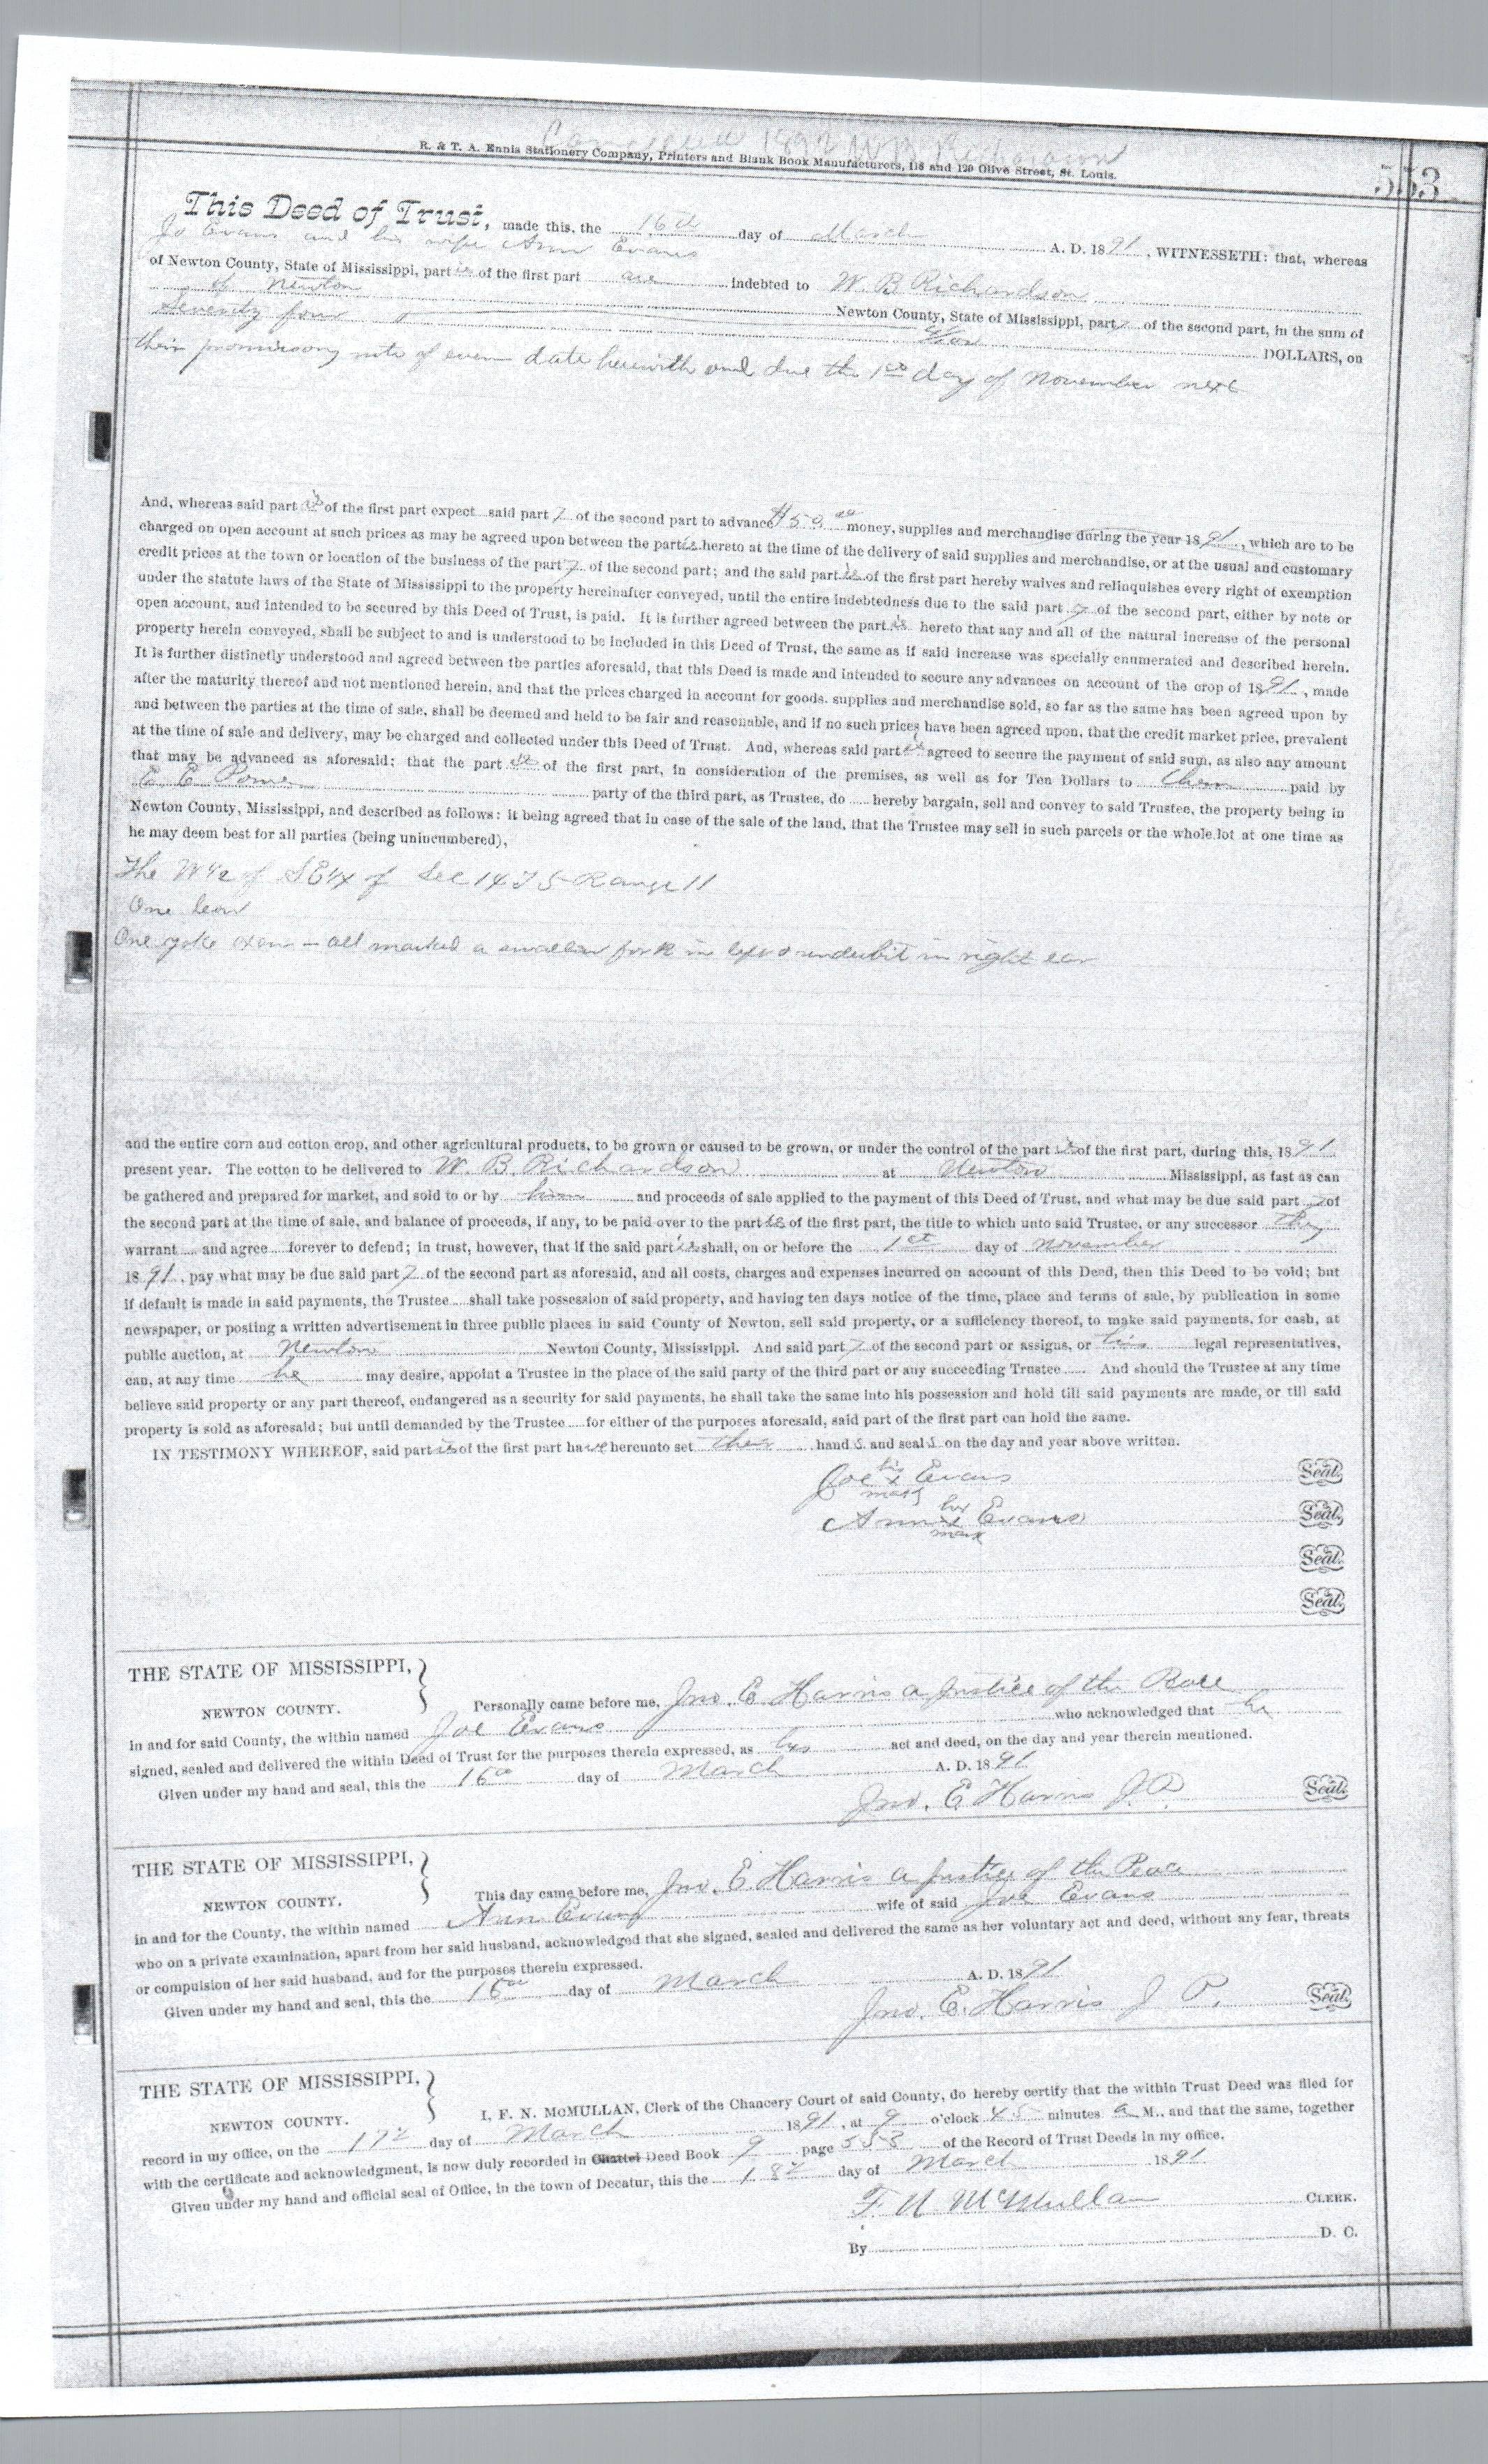 Cancelled 1892 W B Richardson
R. & T. A. Ennis Stationery Company, Printers and Blank Book Manufacturers, 118 and 120 Olive Street, St. Louis.
553
This Deed of Trust, made this, the 16th day of March A. D. 1891, WITNESSETH: that, whereas
Jo Evans and his wife Ann Evans
of Newton County, State of Mississippi, part is of the first part are indebted to W. B Richardson
of Newton Newton County, State of Mississippi, party of the second part, in the sum of
Seventy four DOLLARS, on
their promissory note of even date herewith and due the 1st day of November next
And, whereas said part is of the first part expect said party of the second part to advance $50.00 money, supplies and merchandise during the year 1891, which are to be
charged on open account at such prices as may be agreed upon between the parties hereto at the time of the delivery of said supplies and merchandise, or at the usual and customary
credit prices at the town or location of the business of the party of the second part; and the said part is of the first part hereby waives and relinquishes every right of exemption
under the statute laws of the State of Mississippi to the property hereinafter conveyed, until the entire indebtedness due to the said party of the second part, either by note or
open account, and intended to be secured by this Deed of Trust, is paid. It is further agreed between the part is hereto that any and all of the natural increase of the personal
property herein conveyed, shall be subject to and is understood to be included in this Deed of Trust, the same as if said increase was specially enumerated and described herein.
It is further distinctly understood and agreed between the parties aforesaid, that this Deed is made and intended to secure any advances on account of the crop of 1891, made
after the maturity thereof and not mentioned herein, and that the prices charged in account for goods. supplies and merchandise sold, so far as the same has been agreed upon by
and between the parties at the time of sale, shall be deemed and held to be fair and reasonable, and if no such prices have been agreed upon, that the credit market price, prevalent
at the time of sale and delivery, may be charged and collected under this Deed of Trust. And, whereas said part is agreed to secure the payment of said sum, as also any amount
that may be advanced as aforesaid; that the part is of the first part, in consideration of the premises, as well as for Ten Dollars to them paid by
E. E. party of the third part, as Trustee, do hereby bargain, sell and convey to said Trustee, the property being in
Newton County, Mississippi, and described as follows: it being agreed that in case of the sale of the land, that the Trustee may sell in such parcels or the whole lot at one time as
he may deem best for all parties (being unincumbered),
The W 1/2 of SE 1/4 of Sec 14 T 5 Range 11
One
One yoke oxen – all marked a swallow fork in left & underbit in right ear
and the entire corn and cotton crop, and other agricultural products, to be grown or caused to be grown, or under the control of the part is of the first part, during this, 1891
present year. The cotton to be delivered to W. B. Richardson at Newton Mississippi, as fast as can
be gathered and prepared for market, and sold to or by him and proceeds of sale applied to the payment of this Deed of Trust, and what may be due said party of
the second part at the time of sale, and balance of proceeds, if any, to be paid over to the part is of the first part, the title to which unto said Trustee, or any successor they
warrant and agree forever to defend; in trust, however, that if the said part is shall, on or before the 1st day of November
1891, pay what may be due said party of the second part as aforesaid, and all costs, charges and expenses incurred on account of this Deed, then this Deed to be void; but
if default is made in said payments, the Trustee shall take possession of said property, and having ten days notice of the time, place and terms of sale, by publication in some
newspaper, or posting a written advertisement in three public places in said County of Newton, sell said property, or a sufficiency thereof, to make said payments, for cash, at
public auction, at Newton Newton County, Mississippi. And said party of the second part or assigns, or his legal representatives,
can, at any time he may desire, appoint a Trustee in the place of the said party of the third part or any succeeding Trustee And should the Trustee at any time
believe said property or any part thereof, endangered as a security for said payments, he shall take the same into his possession and hold till said payments are made, or till said
property is sold as aforesaid; but until demanded by the Trustee for either of the purposes aforesaid, said part of the first part can hold the same.
IN TESTIMONY WHEREOF, said part is of the first part have hereunto set their hands and seals on the day and year above written.
Joe his x mark Evans Seal.
Ann her x mark Evans Seal.
Seal.
Seal.
THE STATE OF MISSISSIPPI,
NEWTON COUNTY. Personally came before me, Jno. E Harris a Justice of the Peace
in and for said County, the within named Joe Evans who acknowledged that he
signed, sealed and delivered the within Deed of Trust for the purposes therein expressed, as his act and deed, on the day and year therein mentioned.
Given under my hand and seal, this the 16th day of March A. D. 1891
Jno. E Harris J.P. Seal.
THE STATE OF MISSISSIPPI,
NEWTON COUNTY. This day came before me, Jno. E Harris a Justice of the Peace
in and for the County, the within named Ann Evans wife of said Joe Evans
who on a private examination, apart from her said husband, acknowledged that she signed, sealed and delivered the same as her voluntary act and deed, without any fear, threats
or compulsion of her said husband, and for the purposes therein expressed.
Given under my hand and seal, this the 16th day of March A. D. 1891
Jno. E. Harris J P. Seal.
THE STATE OF MISSISSIPPI,
NEWTON COUNTY. I, F. N. McMULLAN, Clerk of the Chancery Court of said County, do hereby certify that the within Trust Deed was filed for
record in my office, on the 17th day of March 1891, at 9 o'clock 45 minutes a M., and that the same, together
with the certificate and acknowledgment, is now duly recorded in Chattel Deed Book 9 page 553 of the Record of Trust Deeds in my office.
Given under my hand and official seal of Office, in the town of Decatur, this the 18th day of March 1891
F. N McMullan CLERK.
By D. C.